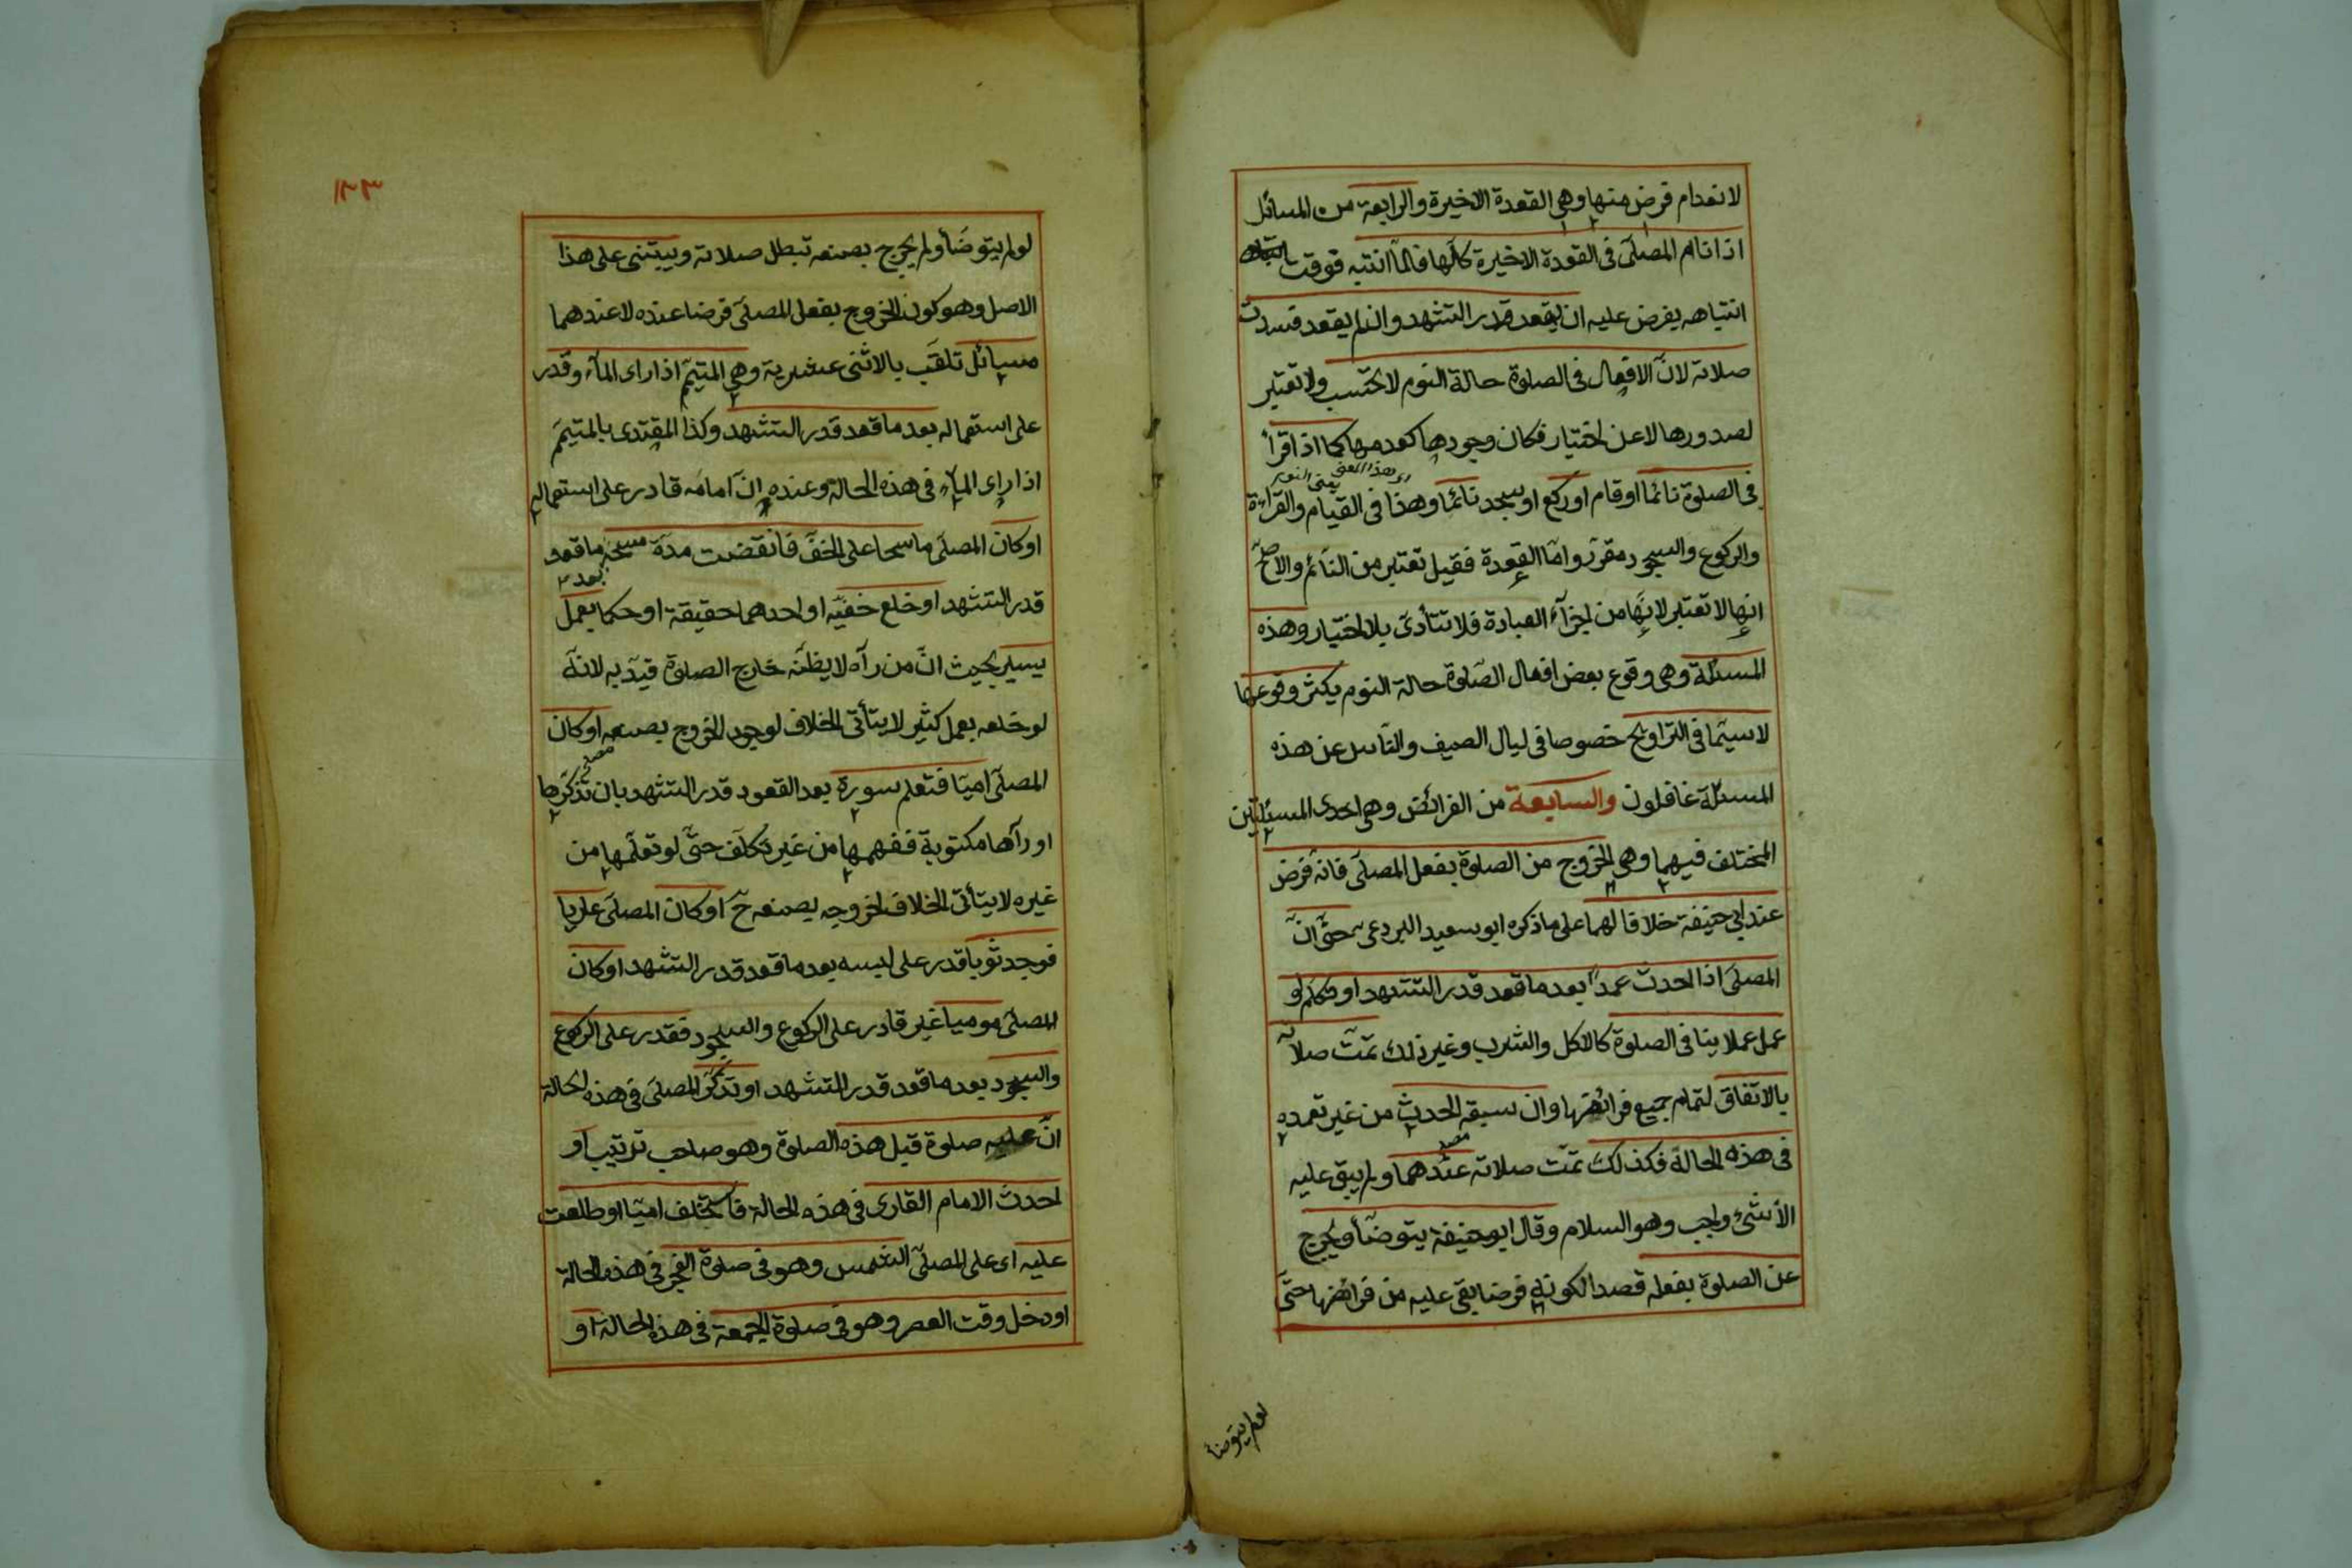 لانعدام فرض منها وهى القعدة الاخيرة والرابعة من المسائل
اذا نام المصلّى فى القعدة الاخيرة كلّها فلمّا انتبه فوقت
انتباهه يفرض عليه ان يقعد قدر التشهد وان لم يقعد فسدت
صلاته لانّ الافعال فى الصلوة حالة النوم لا تحتسب ولا تعتبر
لصدورها لا عن اختيار فكان وجودها كعدمها كما اذا قرأ
اى هذا المعنى يعنى النوم
فى الصلوة نائما او قام او ركع او سجد نائما وهذا فى القيام والقراءة
والركوع والسجود مقرّر وامّا القعدة فقيل تعتبر من النائم والاصحّ
انها لا تعتبر لانّها من اجزآء العبادة فلا تتأدى بلا اختيار وهذه
المسئلة وهى وقوع بعض افعال الصّلوة حالة النوم يكثر وقوعها
لا سيّما فى التراويح خصوصا فى ليال الصيف والنّاس عن هذه
المسئلة غافلون والسابعة من الفرائض وهى احدى المسئلتين
المختلف فيهما وهى الخروج من الصلوة بفعل المصلّى فانه فرض
عند ابى حنيفة خلافا لهما على ما ذكره ابو سعيد البردعى حتّى انّ
المصلّى اذا احدث عمداً بعد ما قعد قدر التشهد او تكلم او
عمل عملا ينافى الصلوة كالاكل والشرب وغير ذلك تمّت صلاته
بالاتفاق لتمام جميع فرائضها وان سبقه الحدث من غير تعمده
فى هذه الحالة فكذلك تمّت صلاته عندهما ولم يبق عليه
الّا شئ واجب وهو السلام وقال ابو حنيفة يتوضّأ ويخرج
عن الصلوة بفعله قصدا لكونه فرضا بقى عليه من فرائضها حتّى
لو لم يتوضأ
١٣٣
لو لم يتوضّأ ولم يخرج بصنعه تبطل صلاته ويبتنى على هذا
الاصل وهو كون الخروج بفعل المصلّى فرضا عنده لا عندهما
مسائل تلقّب بالاثنى عشرية وهى المتيمّم اذا راى المآء وقدر
على استعماله بعد ما قعد قدر التشهد وكذا المقتدى بالمتيمّم
اذا راى المآء فى هذه الحالة وعنده انّ امامه قادر على استعماله
او كان المصلّى ماسحا على الخفّ فانقضت مدّة مسحه ما قعد
بعد
قدر التشهد او خلع خفيّه او احدهما حقيقة او حكما بعمل
يسير بحيث انّ من رآه لا يظنّه خارج الصلوة قيّد به لانّه
لو خلعه بعمل كثير لا يتأتى الخلاف لوجود الخروج بصنعه او كان
المصلّى اميّا فتعلم سورة بعد القعود قدر التشهد بان تذكّرها
او رآها مكتوبة ففهمها من غير تكلّف حتّى لو تعلّمها من
غيره لا يتأتى الخلاف لخروجه بصنعه ح او كان المصلّى عاريا
فوجد ثوبا قدر على لبسه بعد ما قعد قدر التشهد او كان
المصلّى موميا غير قادر على الركوع والسجود فقدر على الركوع
والسجود بعد ما قعد قدر التشهد او تذكّر المصلّى فى هذه الحالة
انّ عليه صلوة قبل هذه الصلوة وهو صاحب ترتيب او
احدث الامام القارى فى هذه الحالة فاستخلف اميّا او طلعت
عليه اى على المصلّى الشمس وهو فى صلوة الفجر فى هذه الحالة
او دخل وقت العصر وهو فى صلوة الجمعة فى هذه الحالة او